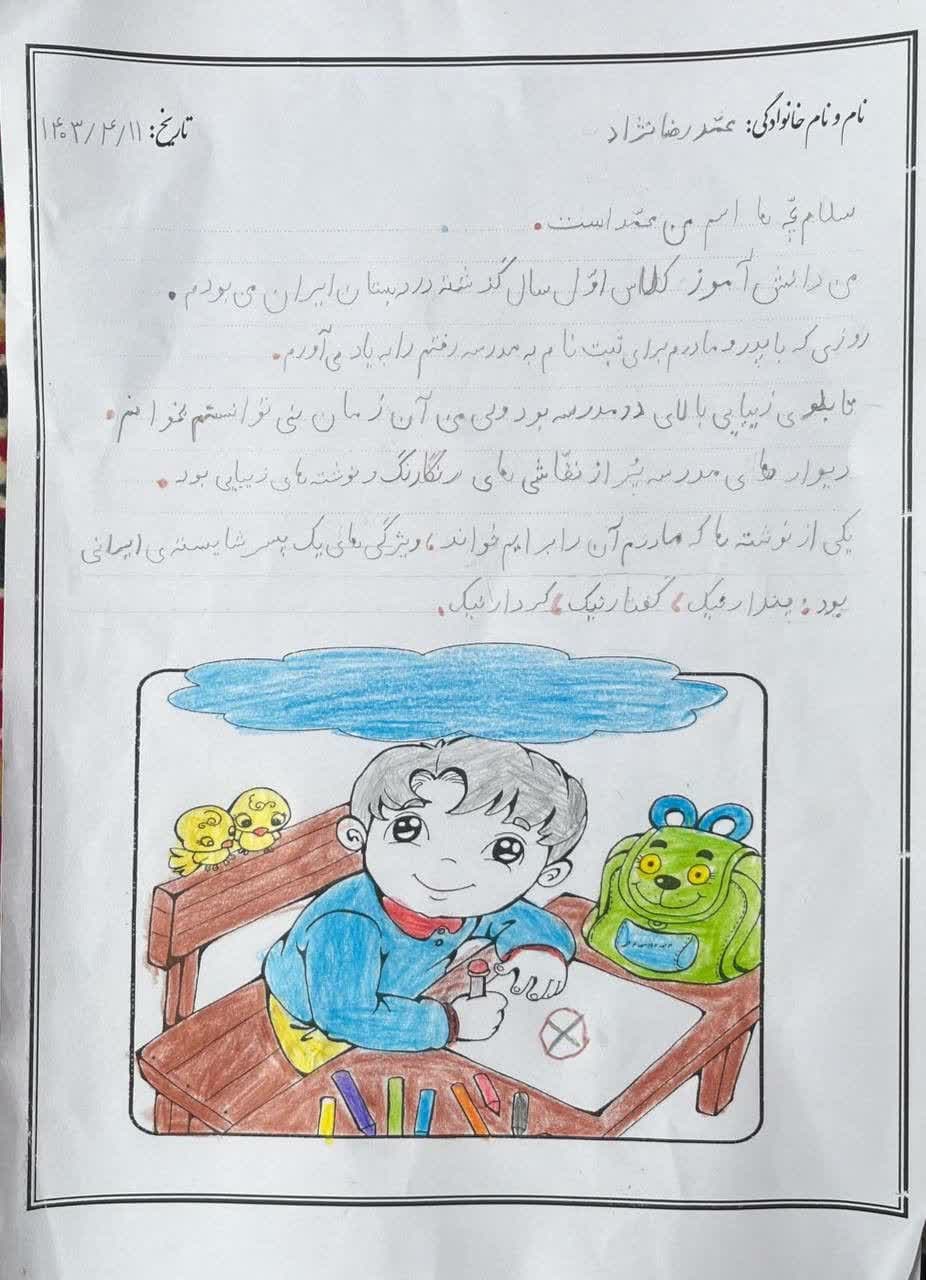 نام و نام خانوادگی: محمّد رضانژاد
تاریخ: ۱۴۰۳/۴/۱۱
سلام بچّه ها اسم من محمّد است.
من دانش آموز کلاس اوّل سال گذشته در دبستان ایران می بودم.
روزی که با پدر و مادرم برای ثبت نام به مدرسه رفتم را به یاد می آورم.
تابلوی زیبایی بالای در مدرسه بود ولی من آن زمان نمی توانستم بخوانم.
دیوار های مدرسه پُر از نقّاشی های رنگارنگ و نوشته های زیبایی بود.
یکی از نوشته ها که مادرم آن را برایم خواند، ویژگی های یک پسر شایسته ی ایرانی
بود: پندار نیک، گفتار نیک، کردار نیک.